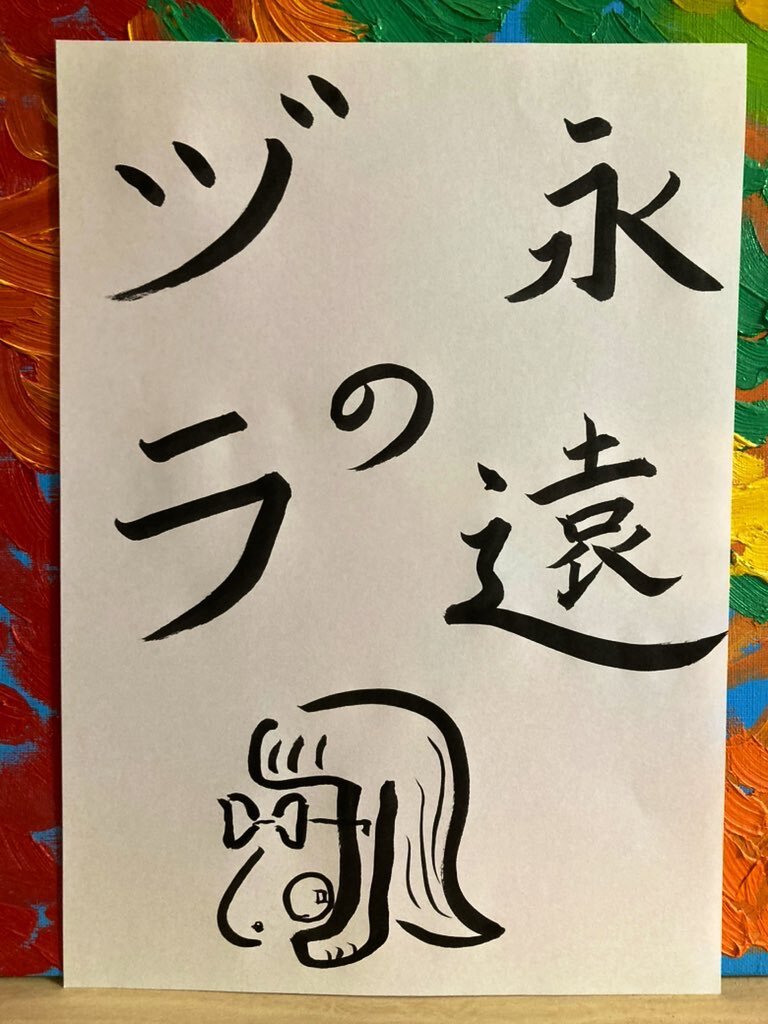 永遠
の
ヅラ